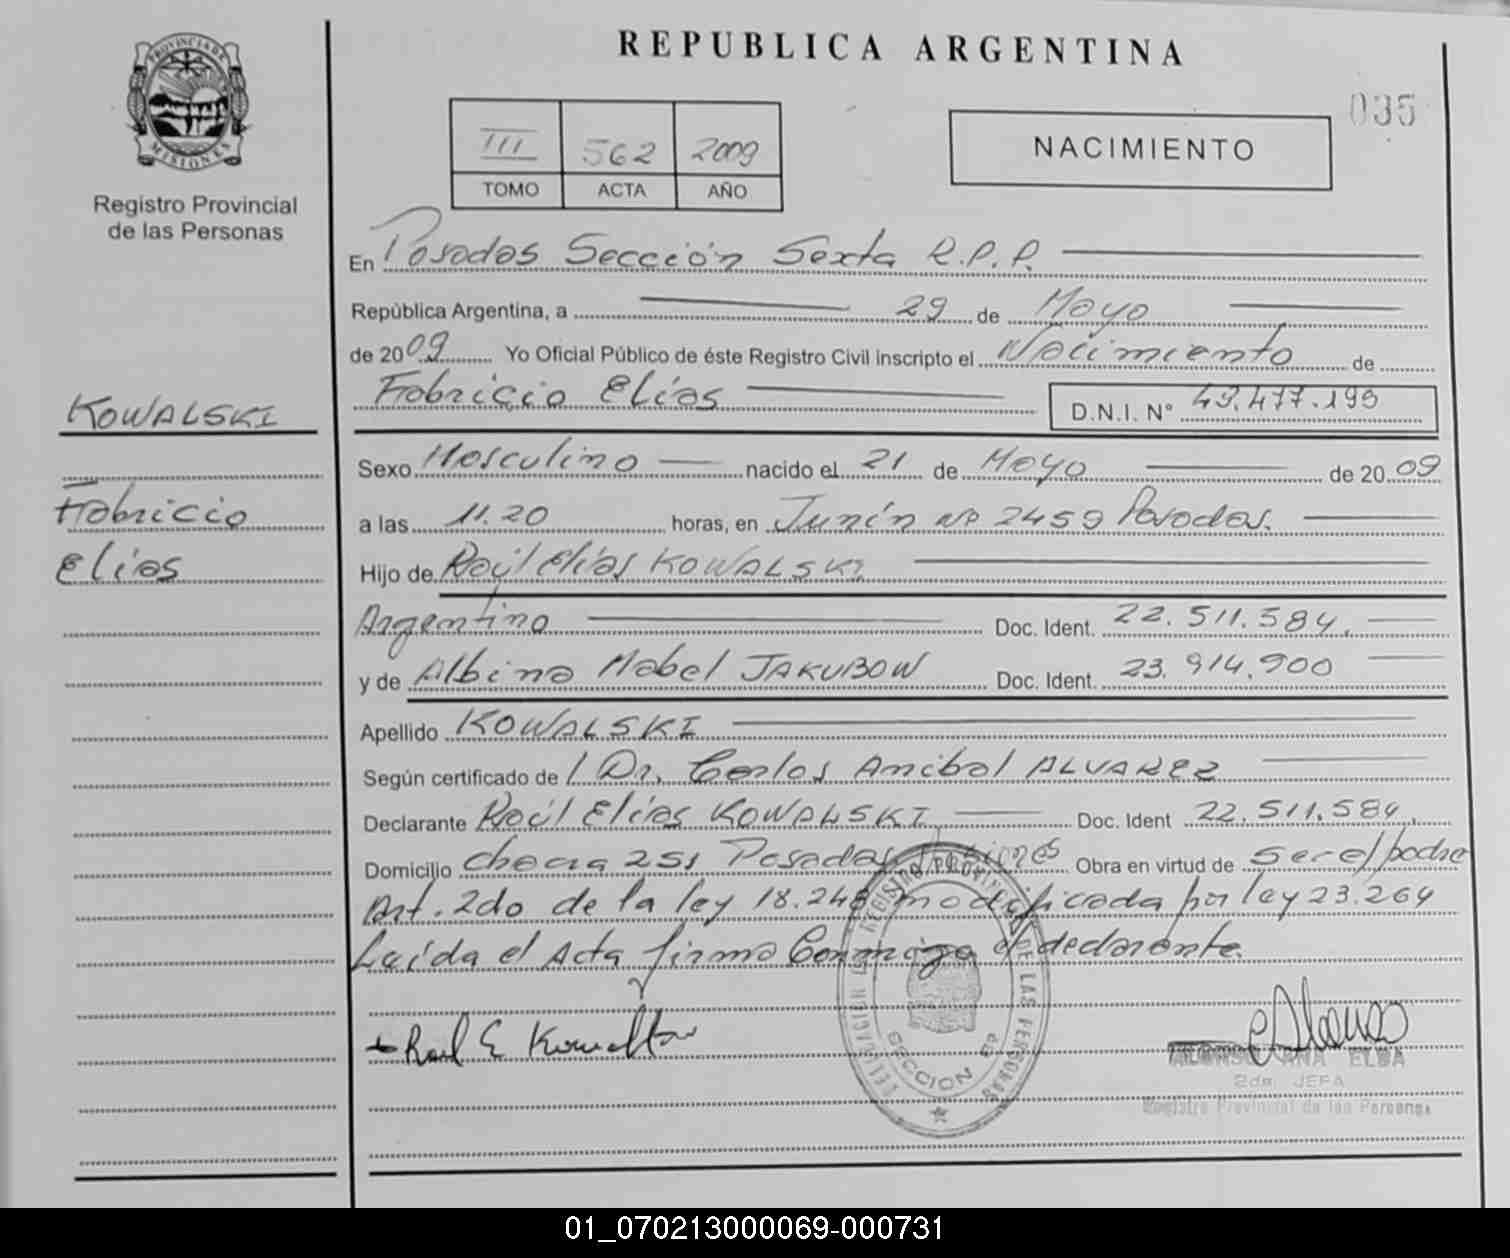 REPUBLICA ARGENTINA
PROVINCIA DE
MISIONES
Registro Provincial
de las Personas
III 562 2009
TOMO ACTA AÑO
NACIMIENTO
035
En Posadas Sección Sexta R.P.P.
República Argentina, a 29 de Mayo
de 2009 Yo Oficial Público de éste Registro Civil inscripto el Nacimiento de
Fabricio Elías D.N.I. N° 49.477.199
KOWALSKI
Fabricio
Elías
Sexo Masculino nacido el 21 de Mayo de 2009
a las 11.20 horas, en Junín Nº 2459 Posadas.
Hijo de Raúl Elías KOWALSKI
Argentino Doc. Ident. 22.511.584.
y de Albina Mabel JAKUBOW Doc. Ident. 23.914.900
Apellido KOWALSKI
Según certificado de Dr. Carlos Anibal ALVAREZ
Declarante Raúl Elías KOWALSKI Doc. Ident 22.511.584.
Domicilio chacra 251 Posadas Misiones Obra en virtud de ser el padre
Art. 2do de la ley 18.248 modificada por ley 23.264
Leída el Acta firma Conmigo el declarante.
Raul E
ALONSO ANA ELBA
2da JEFA
Registro Provincial de las Personas
REGISTRO PROVINCIAL DE LAS PERSONAS
SECCION 6ª
01_070213000069-000731